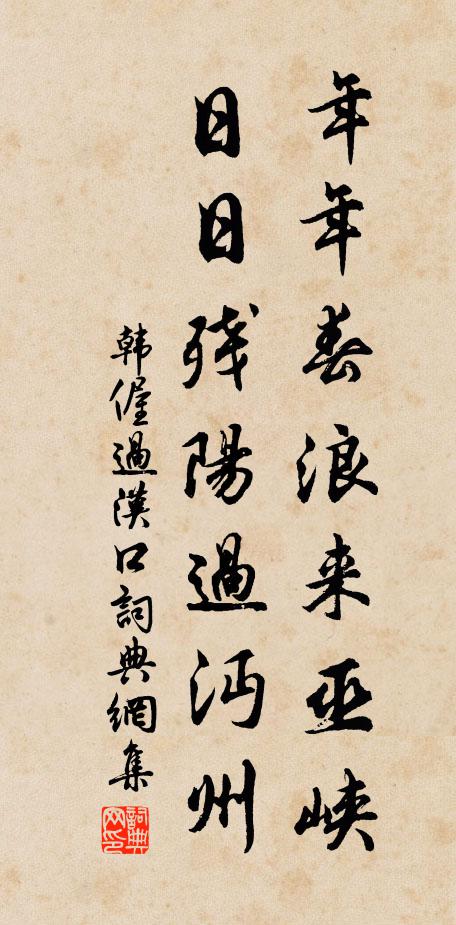 年年春浪来巫峡
日日残陽過沔州
韩偓過漢口詞典網集
詞典網印